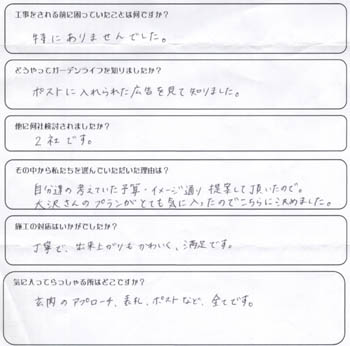 工事をされる前に困っていたことは何ですか?
特にありませんでした。
どうやってガーデンライフを知りましたか?
ポストに入れられた広告を見て知りました。
他に何社検討されましたか?
2社です。
その中から私たちを選んでいただいた理由は?
自分達の考えていた予算・イメージ通り提案して頂いたので。
大沢さんのプランがとても気に入ったのでこちらに決めました。
施工の対応はいかがでしたか?
丁寧で、出来上がりもかわいく、満足です。
気に入ってらっしゃる所はどこですか?
玄関のアプローチ、表札、ポストなど、全てです。